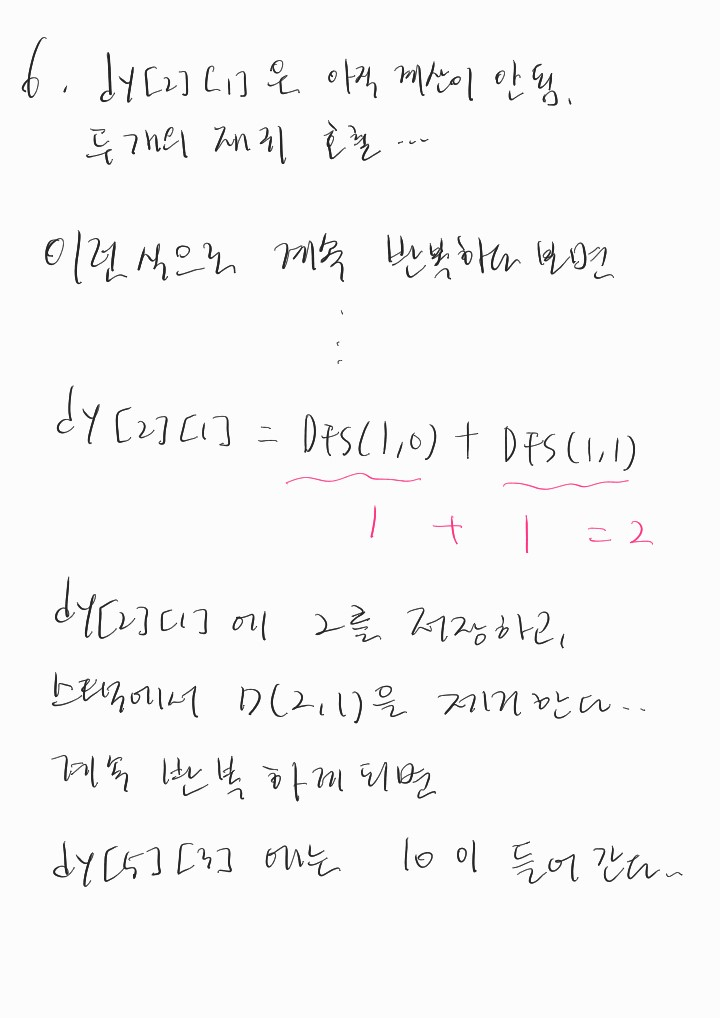 6. dy[2][1]은 아직 계산이 안됨.
두개의 재귀 호출...
이런식으로 계속 반복하다 보면
⋮
dy[2][1] = DFS(1,0) + DFS(1,1)
1 + 1 = 2
dy[2][1]에 2를 저장하고,
스택에서 D(2,1)을 제거한다..
계속 반복하게되면
dy[5][3]에는 10이 들어간다~